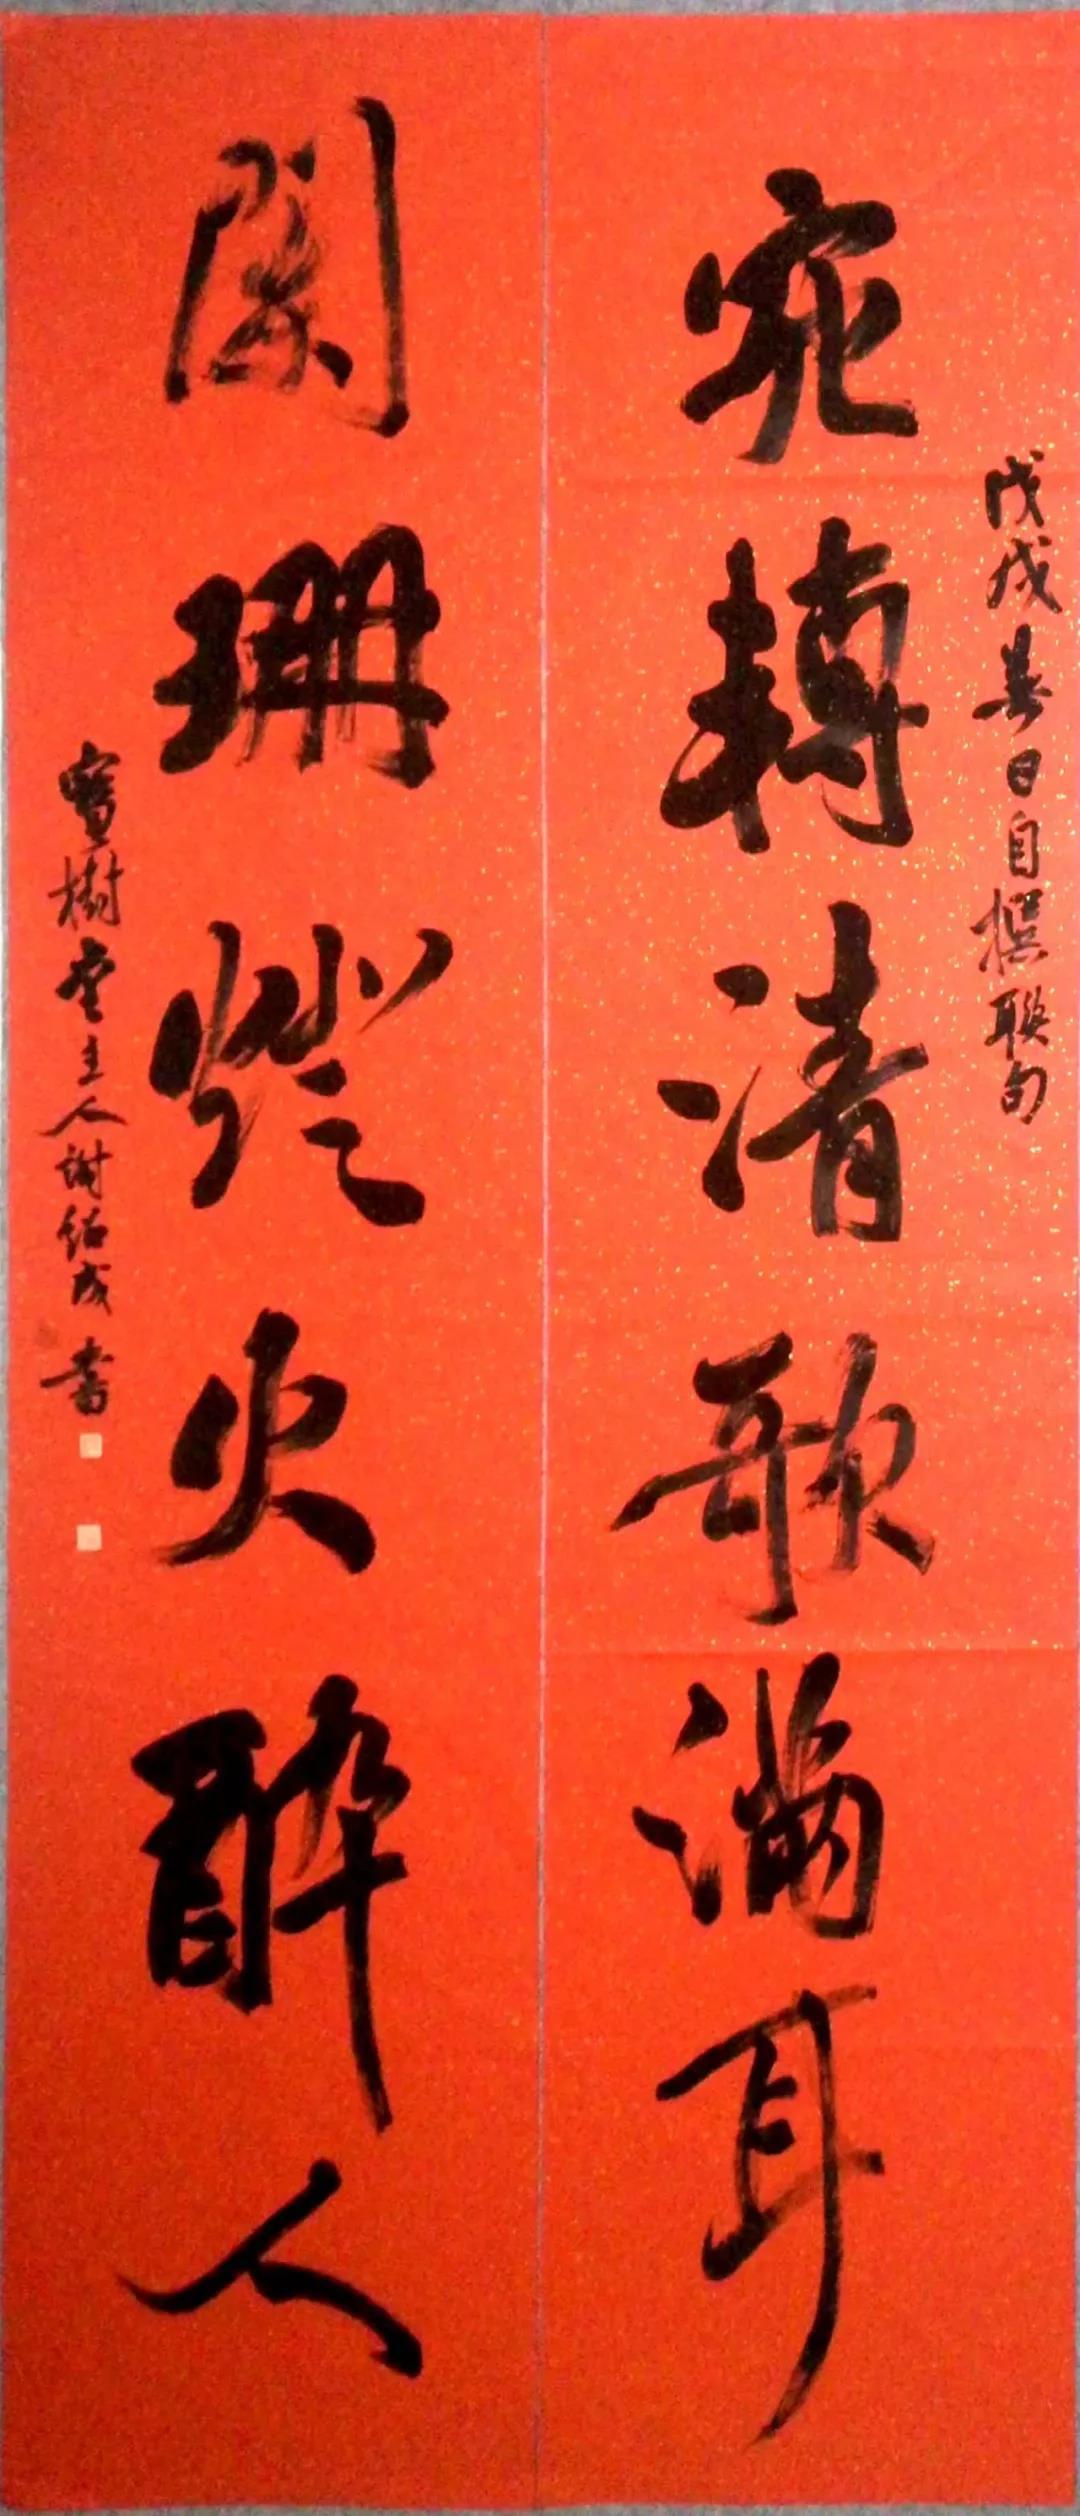 戊戌春日自撰聯句
宛轉清歌滿耳
闌珊燈火醉人
寶樹堂主人謝紹成書